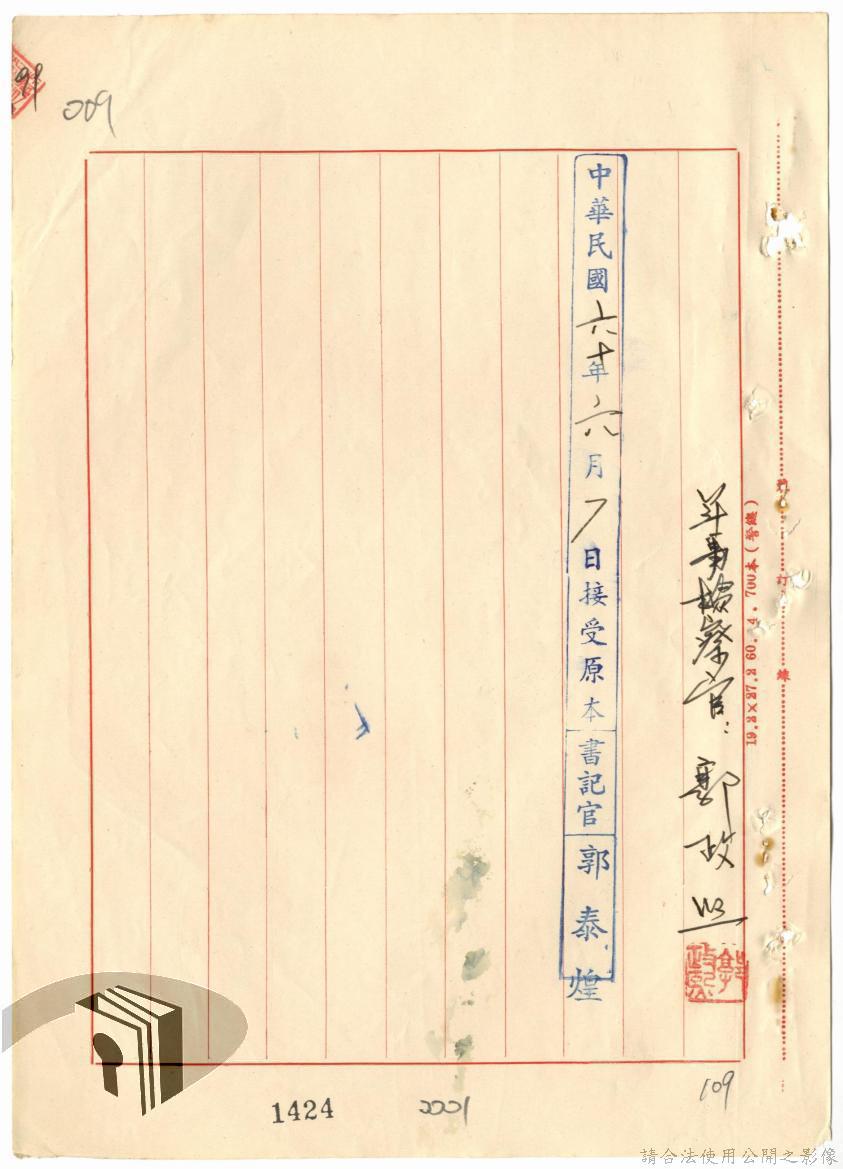 009
軍事檢察官：郭政熙
中華民國六十年六月7日接受原本書記官郭泰煌
19.2×27.2 60.4.700本（警總）
裝訂線
109
1424
請合法使用公開之影像